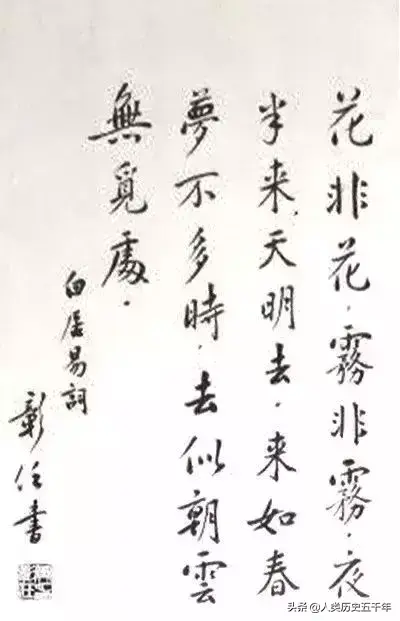 花非花，霧非霧，夜
半来，天明去，来如春
夢不多時，去似朝雲
無覓處。
白居易詞
彰任書
头条 @人类历史五千年